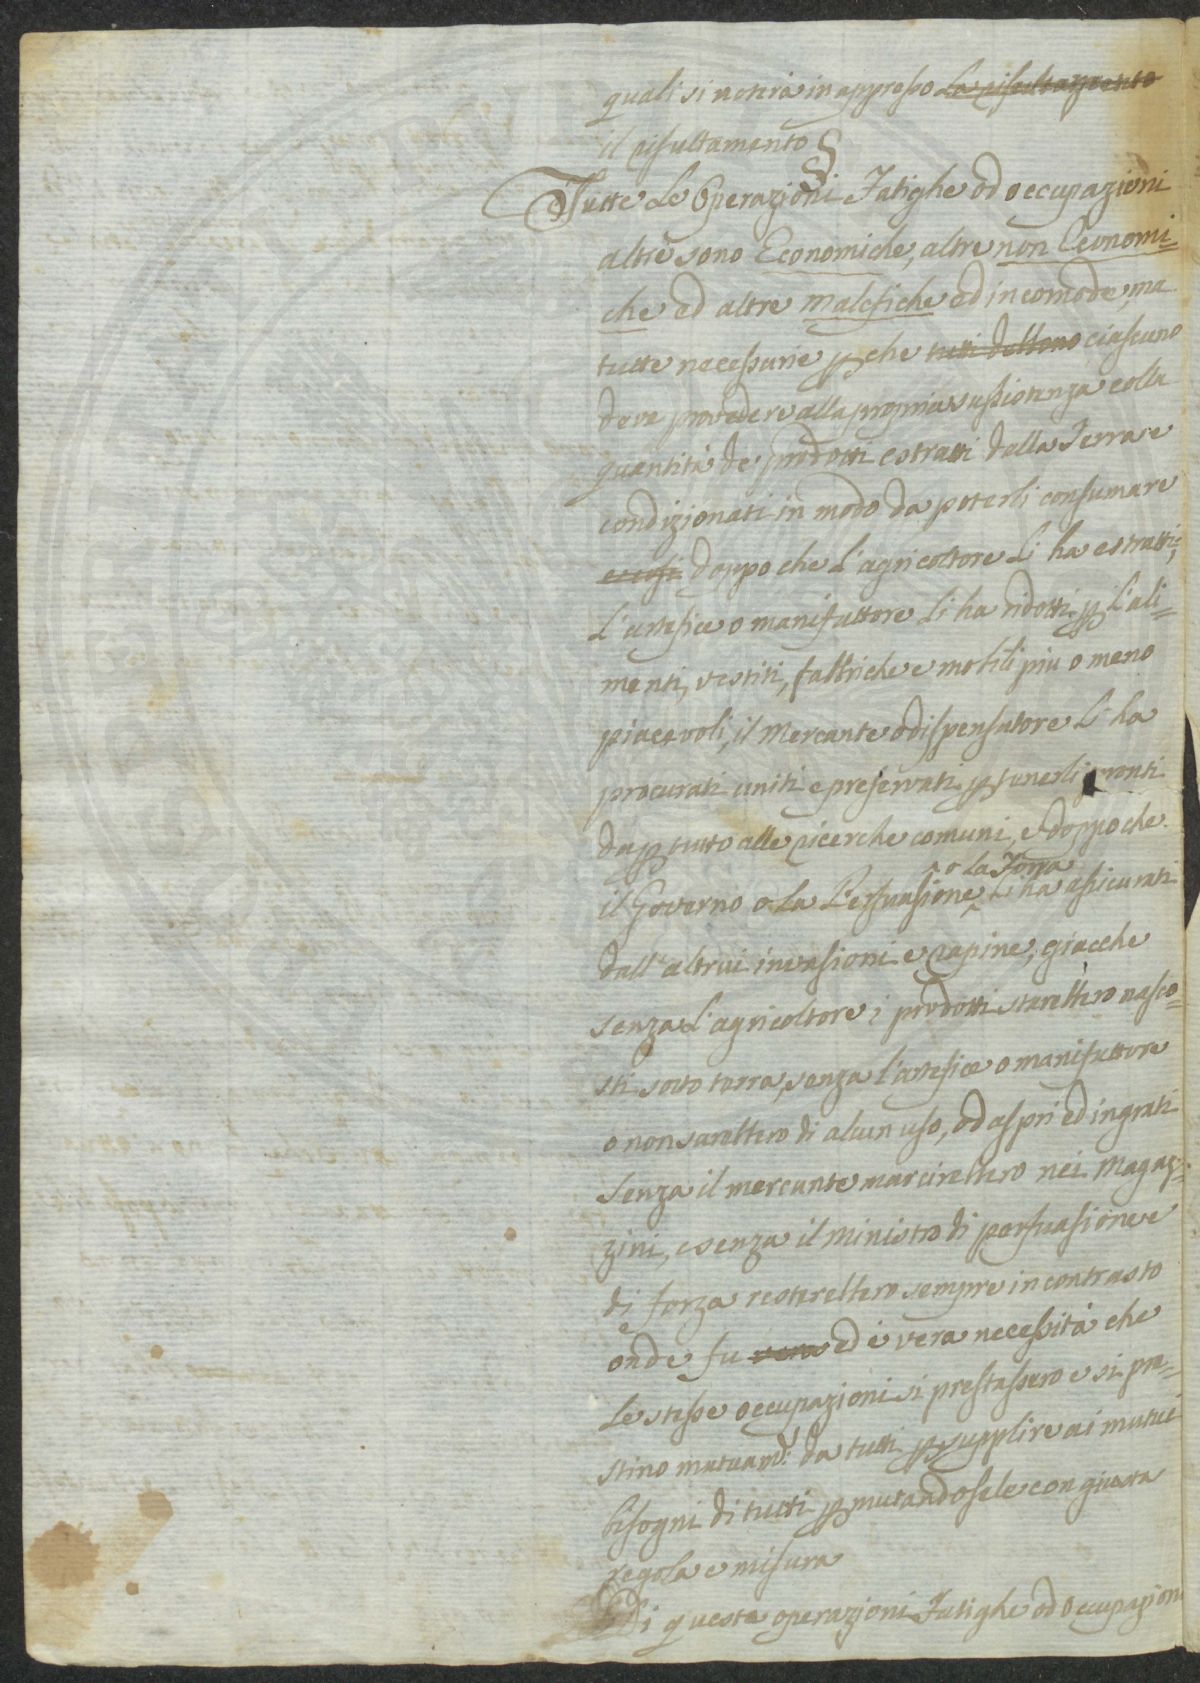 quali si noterà in appresso La risultamento
il risultamento §
Tutte Le Operazioni Fatighe od occupazioni
altre sono Economiche, altre non Economi=
che ed altre malefiche ed incomode, ma
tutte necessarie p che tutti debbono ciascuno
deve provedere alla propria sussistenza colla
quantità de prodotti estratti dalla Terra e
condizionati in modo da poterli consumare
e cosi doppo che L'agricoltore Li ha estratti,
L'artefice o manifattore Li ha ridotti p L'ali=
menti, vestiti, fabbriche e mobili piu o meno
piacevoli, il Mercante o dispensatore Li ha
procurati uniti e preservati p tenerli pronti
da p tutto alle ricerche comuni, e doppo che
o La Forza
il Governo o La Persuasione Li ha assicurati
dall'altrui invasioni e rapine, giacche
senza L'agricoltore i prodotti starebbero nasco=
sti sotto terra, senza l'artefice o manifattore
o non sarebbero di alcun uso, od aspri ed ingrati
senza il mercante marcirebbero nei Magaz=
zini, e senza il ministro di persuasione e
di forza resterebbero sempre in contrasto
onde fu vera ed è vera necessità che
Le stesse occupazioni si prestassero e si pre=
stino mutuam.e da tutti p supplire ai mutui
bisogni di tutti p mutandosele con giusta
regola e misura
Di queste operazioni Fatighe od Occupazioni